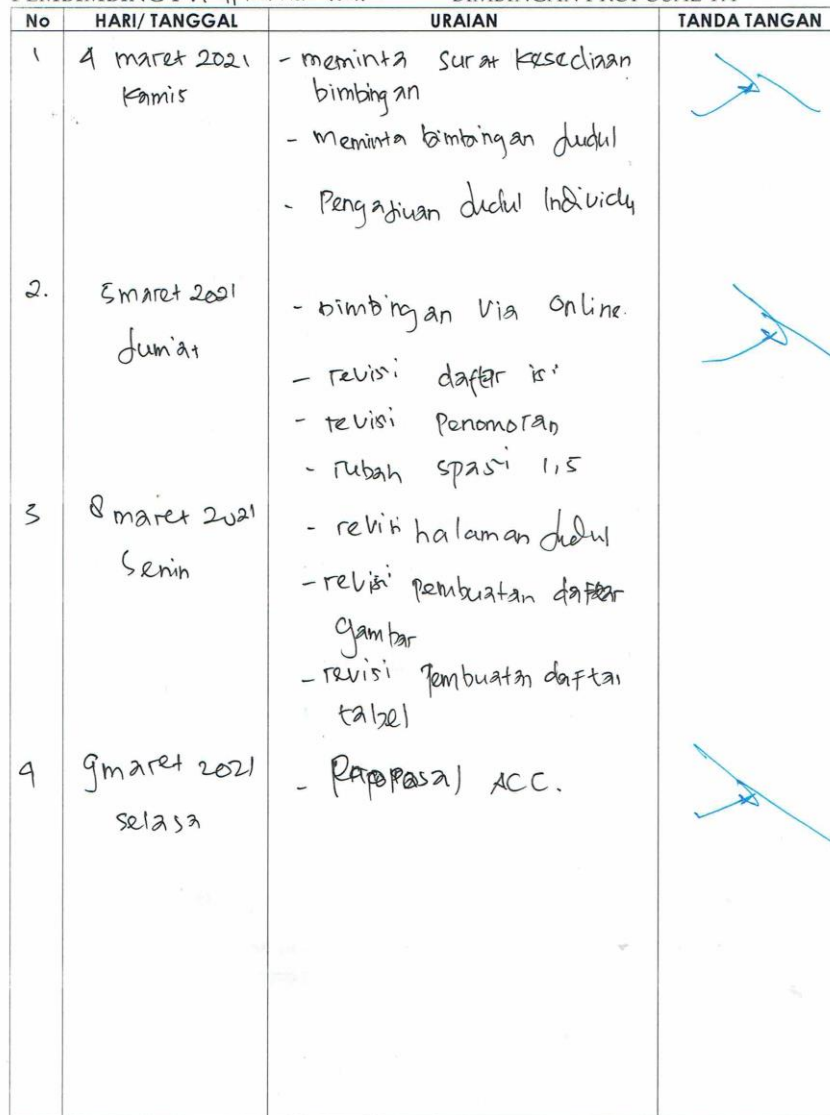 No HARI/ TANGGAL URAIAN TANDA TANGAN
1 4 maret 2021 - meminta surat kesediaan
Kamis bimbingan
- meminta bimbingan judul
- Pengajuan judul Individu
2. 5 maret 2021 - bimbingan Via online.
Jum'at
- revisi daftar isi
- revisi Penomoran
- rubah spasi 1,5
3 8 maret 2021 - revisi halaman judul
Senin
- revisi pembuatan daftar
gambar
- revisi Pembuatan daftar
tabel
4 9 maret 2021 - Proposal ACC.
selasa